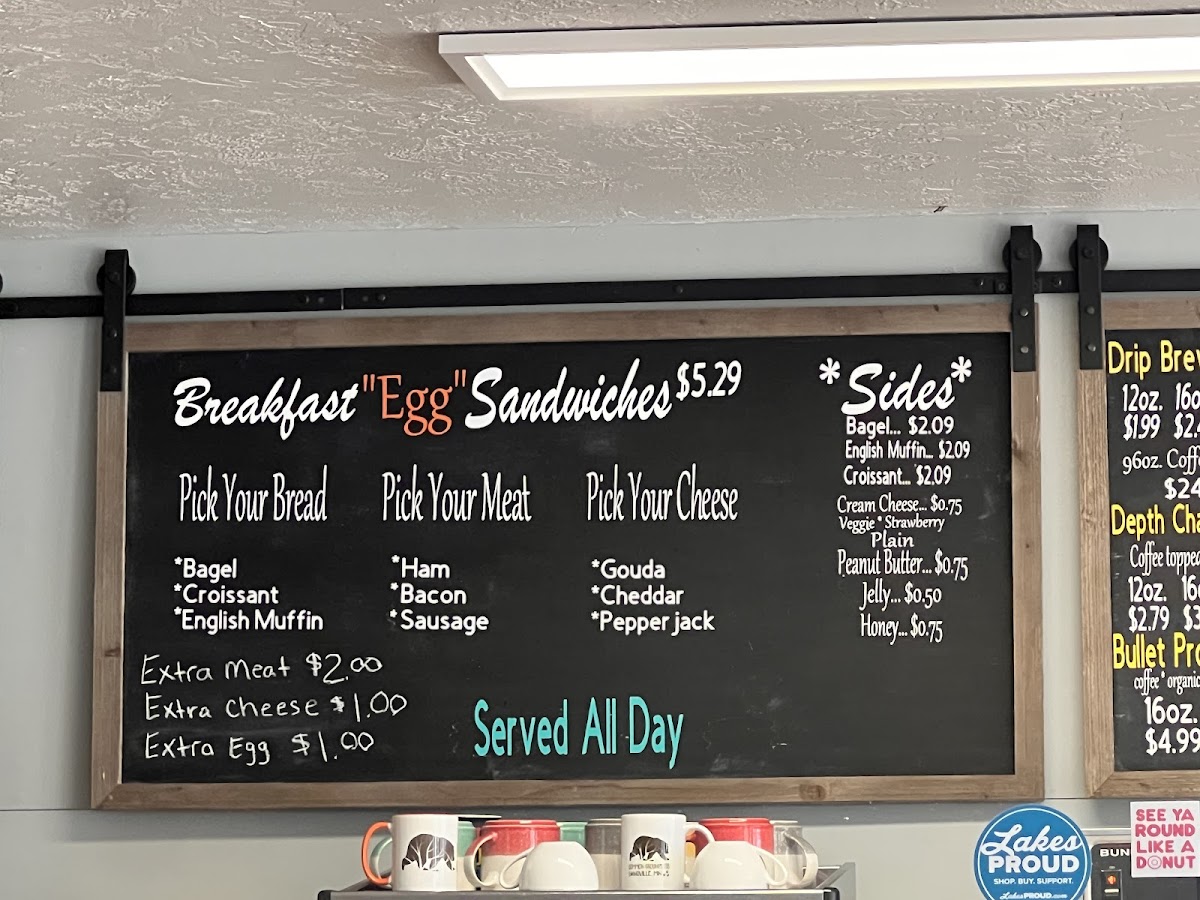 Breakfast "Egg" Sandwiches $5.29
Pick Your Bread
*Bagel
*Croissant
*English Muffin
Pick Your Meat
*Ham
*Bacon
*Sausage
Pick Your Cheese
*Gouda
*Cheddar
*Pepper jack
Extra Meat $2.00
Extra Cheese $1.00
Extra Egg $1.00
Served All Day
*Sides*
Bagel... $2.09
English Muffin... $2.09
Croissant... $2.09
Cream Cheese... $0.75
Veggie * Strawberry
Plain
Peanut Butter... $0.75
Jelly... $0.50
Honey... $0.75
Drip Brew
12oz. 16o
$1.99 $2.4
96oz. Coff
$24
Depth Cha
Coffee toppe
12oz. 16
$2.79 $3
Bullet Pro
coffee * organic
16oz.
$4.99
Lakes
PROUD
SHOP. BUY. SUPPORT.
LakesPROUD.com
BUN
SEE YA
ROUND
LIKE A
DONUT